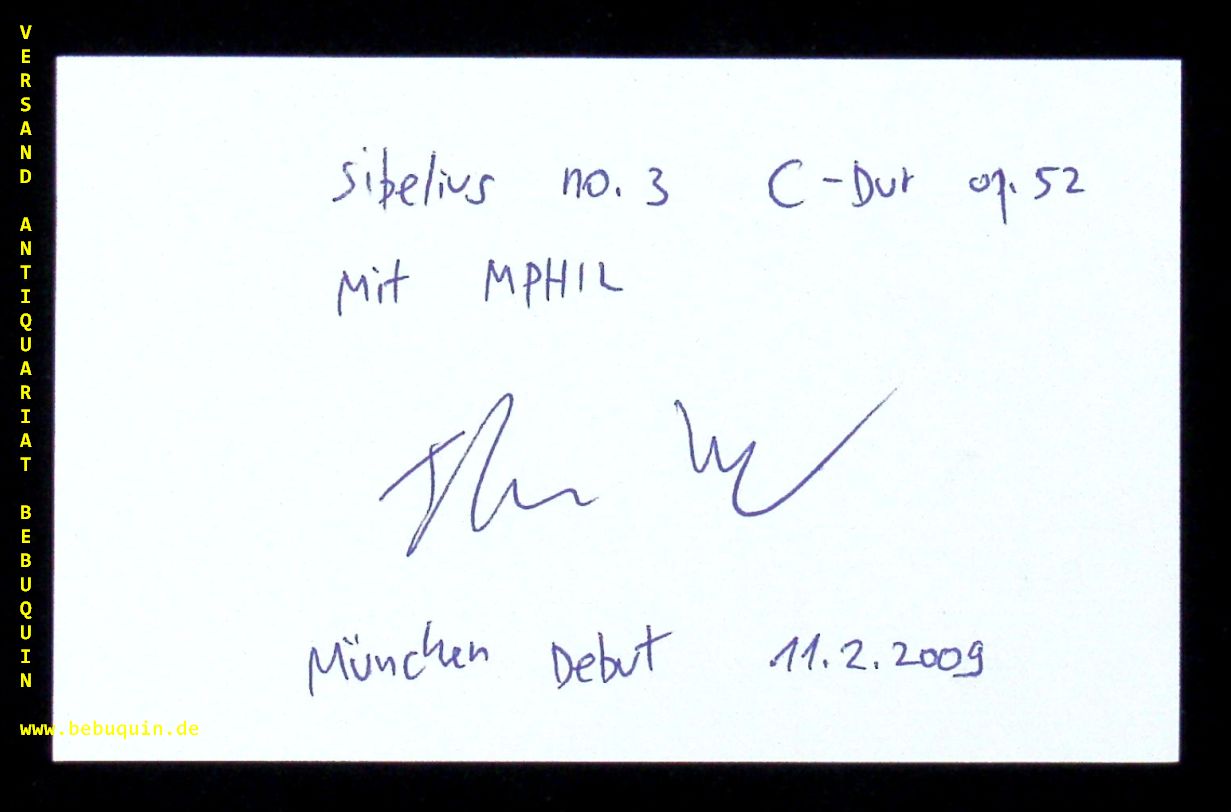 VERSAND ANTIQUARIAT BEBUQUIN
Sibelius no. 3 C-Dur op. 52
Mit MPHIL
München Debut 11.2.2009
www.bebuquin.de